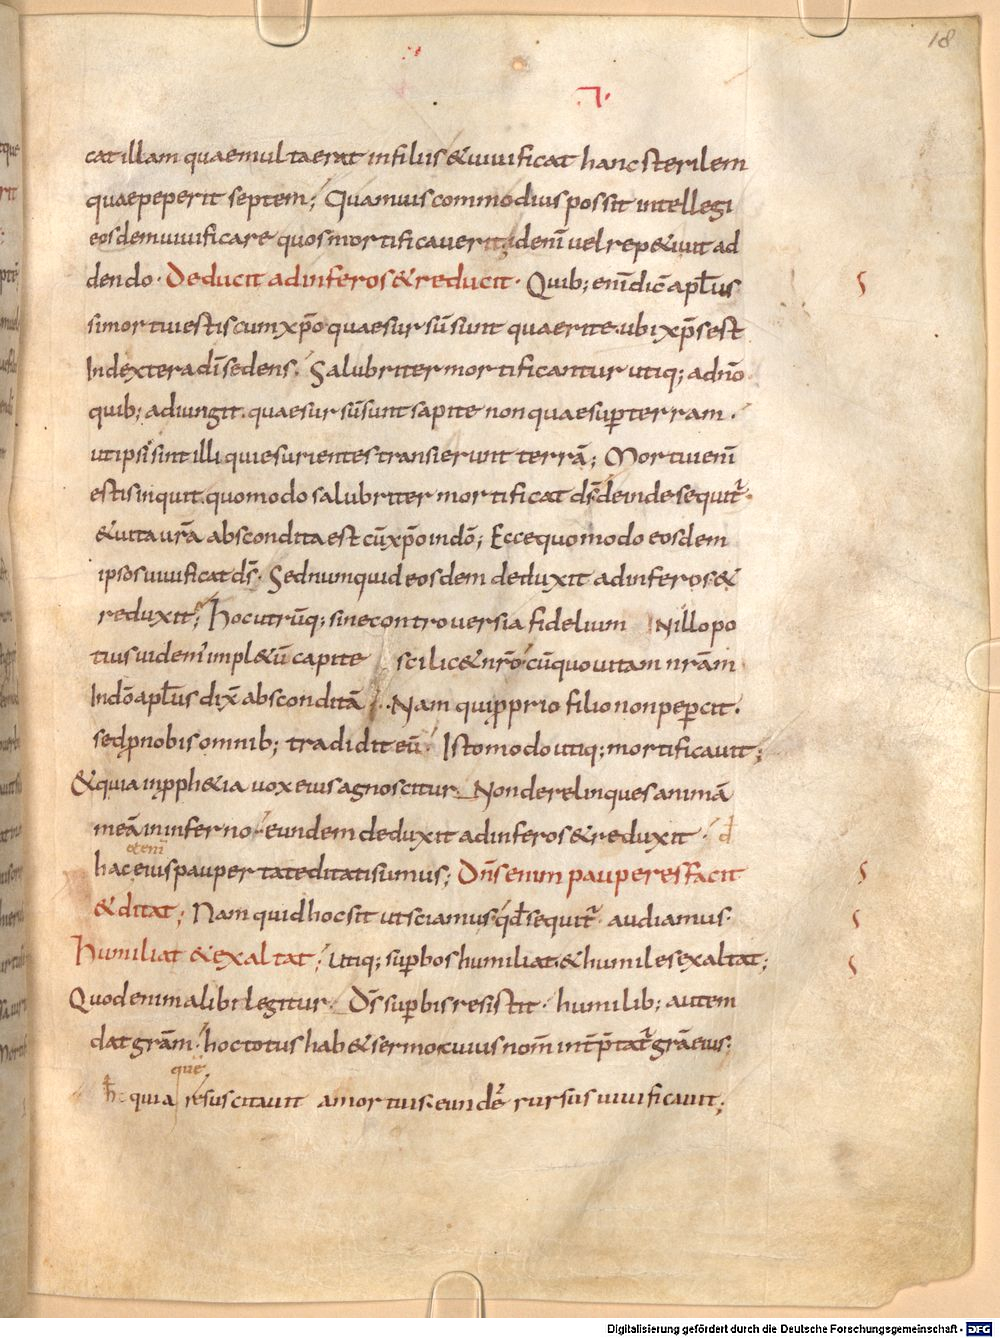 18
cat illam quae multa erat in filiis & uiuificat hanc sterilem
quae peperit septem; Quamuis commodius possit intellegi
eosdem uiuificare quos mortificauerit; idem̅ uel rep&iuit ad
dendo· Deducit ad inferos & reducit· Quib; eni̅ dic̅ apl̅us
si mortui estis cum xp̅o quae sursu̅ sunt quaerite· ubi xp̅s est
In dextera di̅ sedens· Salubriter mortificantur utiq; a dn̅o·
quib; adiungit· quae sursu̅ sunt sapite non quae sup̅ terram·
ut ipsi sint illi qui esurientes transierunt terra̅; Mortui eni̅
estis inquit· quomodo salubriter mortificat ds̅ deinde sequit̅·
& uita ur̅a abscondita est cu̅ xp̅o in do̅; Ecce quomodo eosdem
ipsos uiuificat ds̅· Sed numquid eosdem deduxit ad inferos &
reduxit; Hoc utru̅q; sine controuersia fidelium In illo po
tius uidem' impl&u̅ capite scilic& nr̅o cu̅ quo uitam nr̅am
In do̅ apl̅us dix̅ abscondita̅· Nam qui p̱prio filio non pep̱cit·
sed p̱ nobis omnib; tradidit eu̅· Isto modo utiq; mortificauit;
& quia in p̱ph&ia uox eius agnoscitur· Non derelinques anima̅
mea̅ in inferno· eundem deduxit ad inferos & reduxit·
eteni̅
hac eius paupertate ditati sumus; Dn̅s enim pauperes facit
& ditat; Nam quid hoc sit ut sciamus· qd̅ sequit̅· audiamus·
Humiliat & exaltat; Utiq; sup̱bos humiliat· & humiles exaltat;
Quod enim alibi legitur· Ds̅ sup̱bis resistit· humilib; autem
dat gr̅am· hoc totus hab& sermo cuius nom̅ int̅p̅tat̅ gr̅a eius·
que̅
quia resuscitauit a mortuis· eunde̅ rursus uiuificauit;
Digitalisierung gefördert durch die Deutsche Forschungsgemeinschaft - DFG